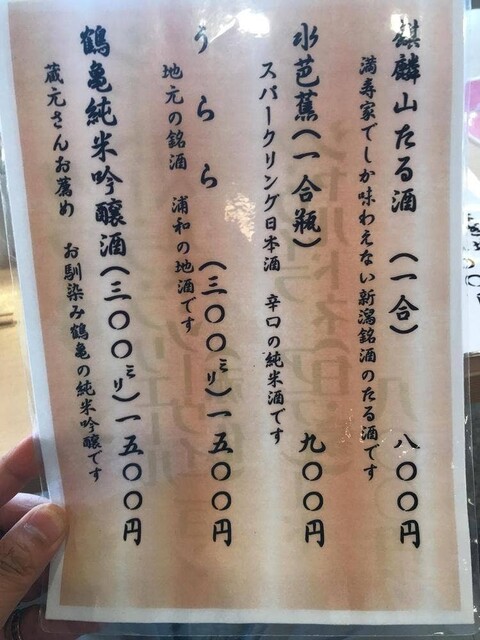 麒麟山たる酒　(一合)　八〇〇円
満寿家でしか味わえない新潟銘酒のたる酒です
水芭蕉(一合瓶)　九〇〇円
スパークリング日本酒　辛口の純米酒です
うらら　(三〇〇ミリ)一五〇〇円
地元の銘酒　浦和の地酒です
鶴亀純米吟醸酒(三〇〇ミリ)一五〇〇円
蔵元さんお薦め　お馴染み鶴亀の純米吟醸です